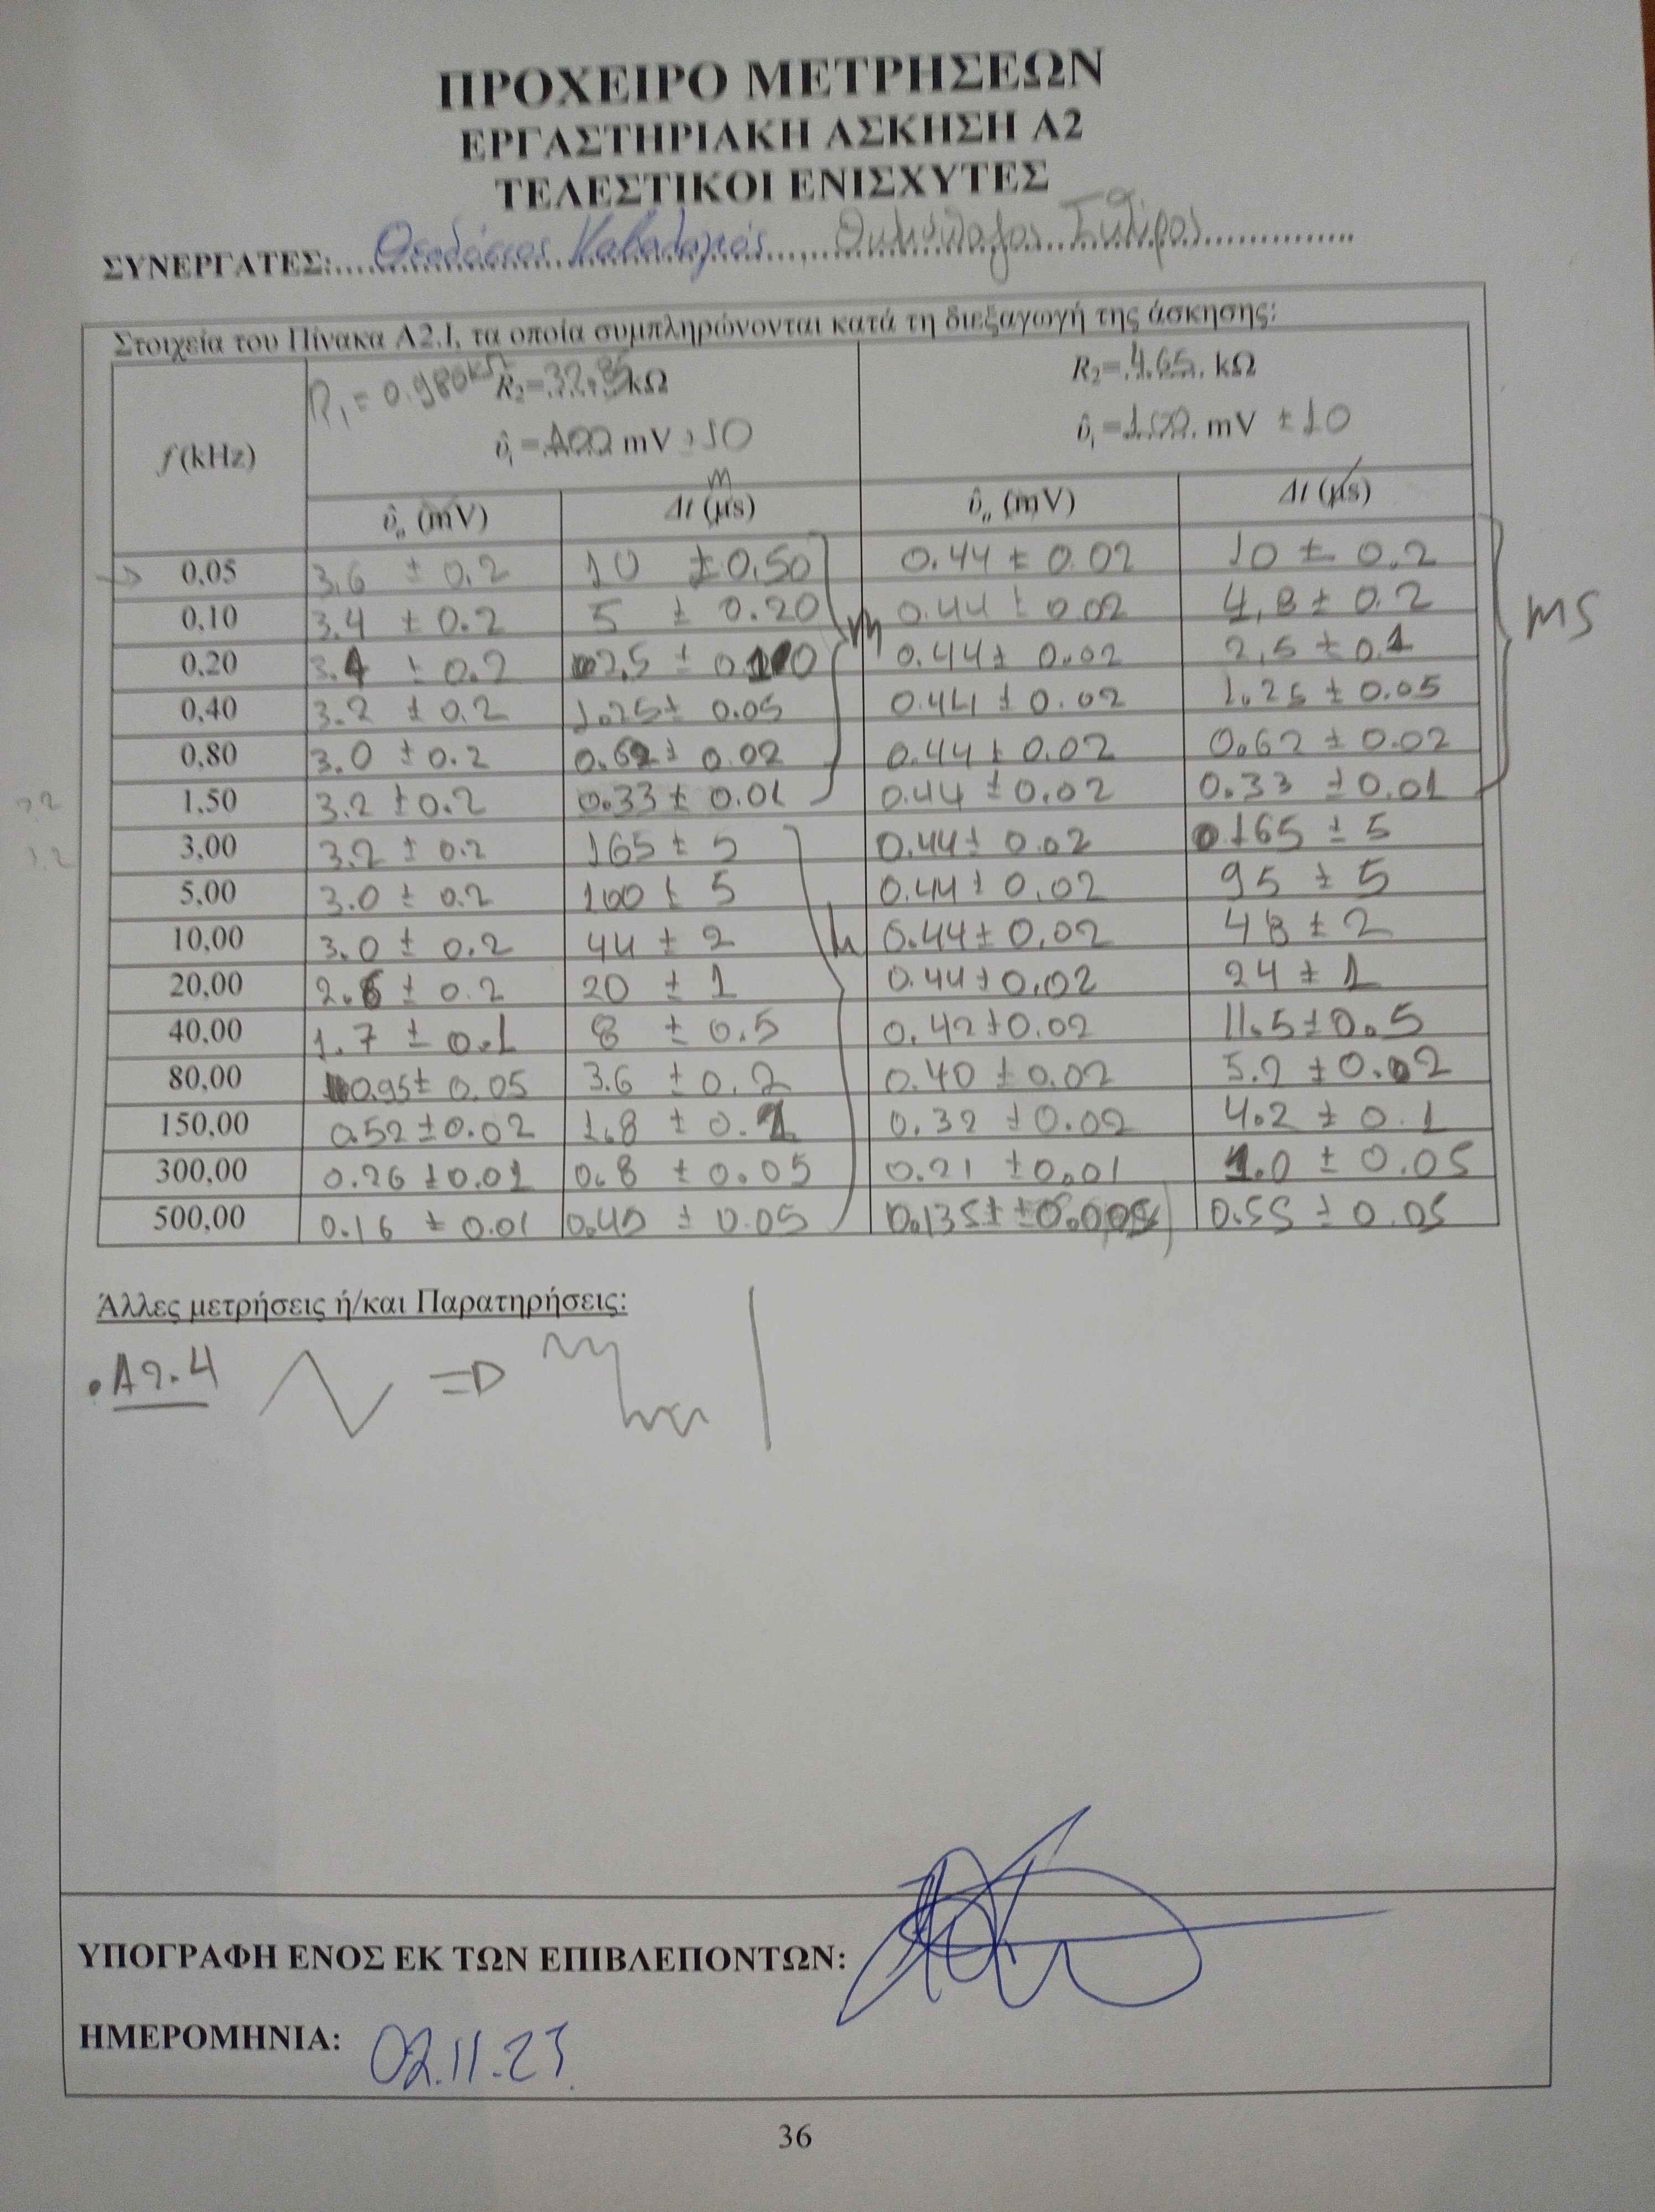 ΠΡΟΧΕΙΡΟ ΜΕΤΡΗΣΕΩΝ
ΕΡΓΑΣΤΗΡΙΑΚΗ ΑΣΚΗΣΗ Α2
ΤΕΛΕΣΤΙΚΟΙ ΕΝΙΣΧΥΤΕΣ
ΣΥΝΕΡΓΑΤΕΣ: Θεοδόσιος
Στοιχεία του Πίνακα Α2.Ι, τα οποία συμπληρώνονται κατά τη διεξαγωγή της άσκησης:
f (kHz) R1 = 0.980kΩ R2=32.85kΩ R2=4.65 kΩ
υ̂i =100 mV ±10 υ̂i =100 mV ±10
υ̂o (mV) Δt (μs) m υ̂o (mV) Δt (μs)
0,05 3.6 ± 0.2 10 ±0.50 0.44 ± 0.02 10 ± 0.2
0,10 3.4 ± 0.2 5 ± 0.20 0.44 ± 0.02 4,8 ± 0.2
0,20 3.4 ± 0.2 2,5 ± 0.10 0.44 ± 0.02 2,5 ± 0.1
0,40 3.2 ± 0.2 1.25 ± 0.05 0.44 ± 0.02 1.25 ± 0.05
0,80 3.0 ± 0.2 0.62 ± 0.02 0.44 ± 0.02 0.62 ± 0.02
1,50 3.2 ± 0.2 0.33 ± 0.01 0.44 ± 0.02 0.33 ± 0.01
3,00 3.2 ± 0.2 165 ± 5 0.44 ± 0.02 165 ± 5
5,00 3.0 ± 0.2 100 ± 5 0.44 ± 0.02 95 ± 5
10,00 3.0 ± 0.2 44 ± 2 0.44 ± 0.02 48 ± 2
20,00 2.6 ± 0.2 20 ± 1 0.44 ± 0.02 24 ± 1
40,00 1.7 ± 0.1 8 ± 0.5 0.42 ± 0.02 11.5 ± 0.5
80,00 0.95 ± 0.05 3.6 ± 0.2 0.40 ± 0.02 5.2 ± 0.2
150,00 0.52 ± 0.02 1.8 ± 0.1 0.32 ± 0.02 4.2 ± 0.1
300,00 0.26 ± 0.01 0.8 ± 0.05 0.21 ± 0.01 1.0 ± 0.05
500,00 0.16 ± 0.01 0.40 ± 0.05 0.135 ± ±0.005 0.55 ± 0.05
m
μ
ms
3.2
3.2
Άλλες μετρήσεις ή/και Παρατηρήσεις:
• A2.4 =>
ΥΠΟΓΡΑΦΗ ΕΝΟΣ ΕΚ ΤΩΝ ΕΠΙΒΛΕΠΟΝΤΩΝ:
ΗΜΕΡΟΜΗΝΙΑ: 02.11.23
36